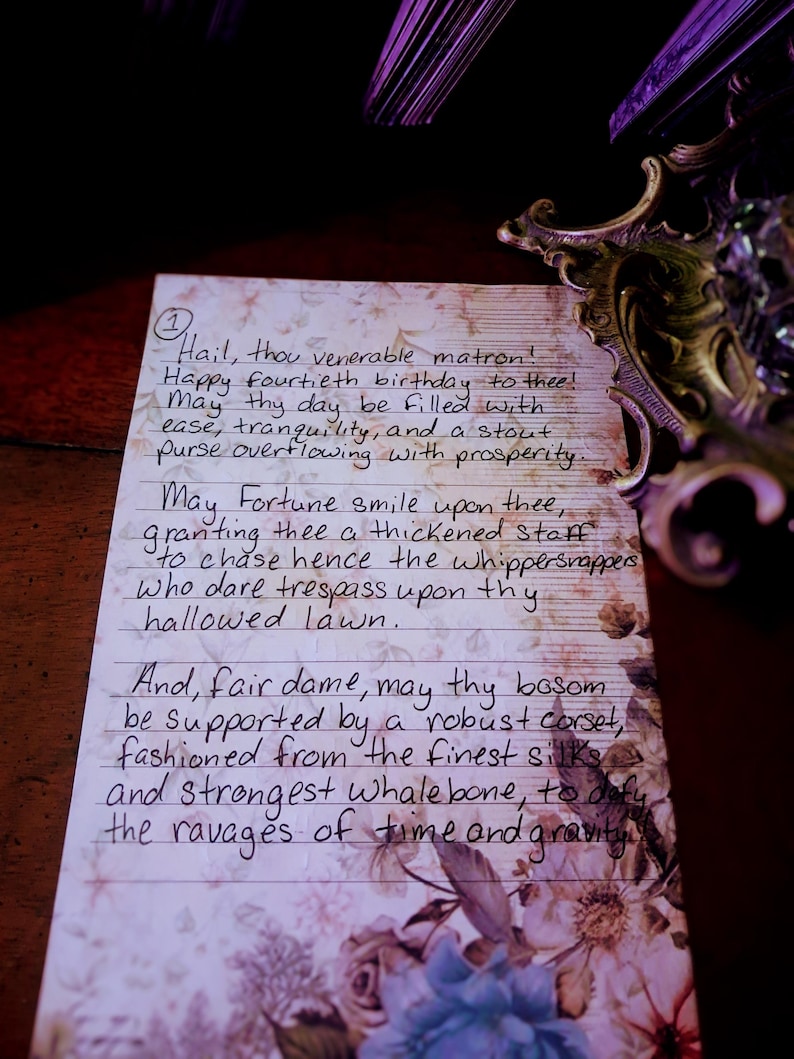 1
Hail, thou venerable matron!
Happy fourtieth birthday to thee!
May thy day be filled with
ease, tranquility, and a stout
purse overflowing with prosperity.
May Fortune smile upon thee,
granting thee a thickened staff
to chase hence the whippersnappers
who dare trespass upon thy
hallowed lawn.
And, fair dame, may thy bosom
be supported by a robust corset,
fashioned from the finest silks
and strongest whalebone, to defy
the ravages of time and gravity!